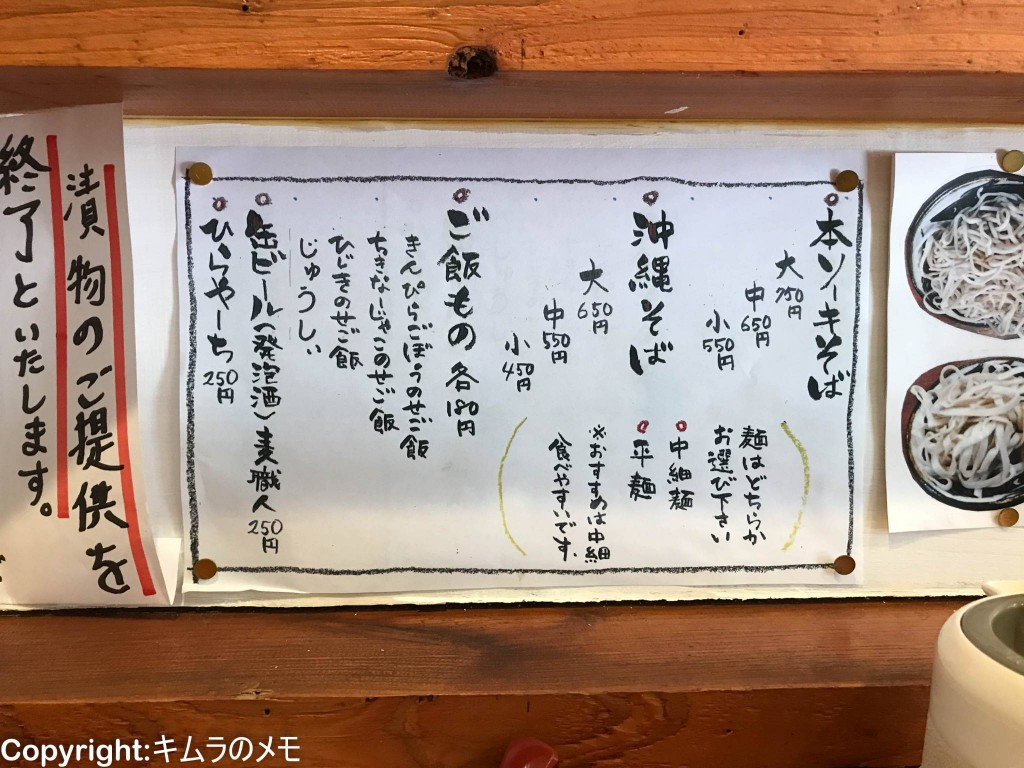 本ソーキそば
大 750円
中 650円
小 550円
麺はどちらか
お選び下さい
中細麺
平麺
※おすすめは中細
食べやすいです。
沖縄そば
大 650円
中 550円
小 450円
ご飯もの 各180円
きんぴらごぼうのせご飯
ちきなーじゃこのせご飯
ひじきのせご飯
じゅうしぃ
缶ビール(発泡酒)麦職人 250円
ひらやーち 250円
漬物のご提供を
終了といたします。
Copyright:キムラのメモ